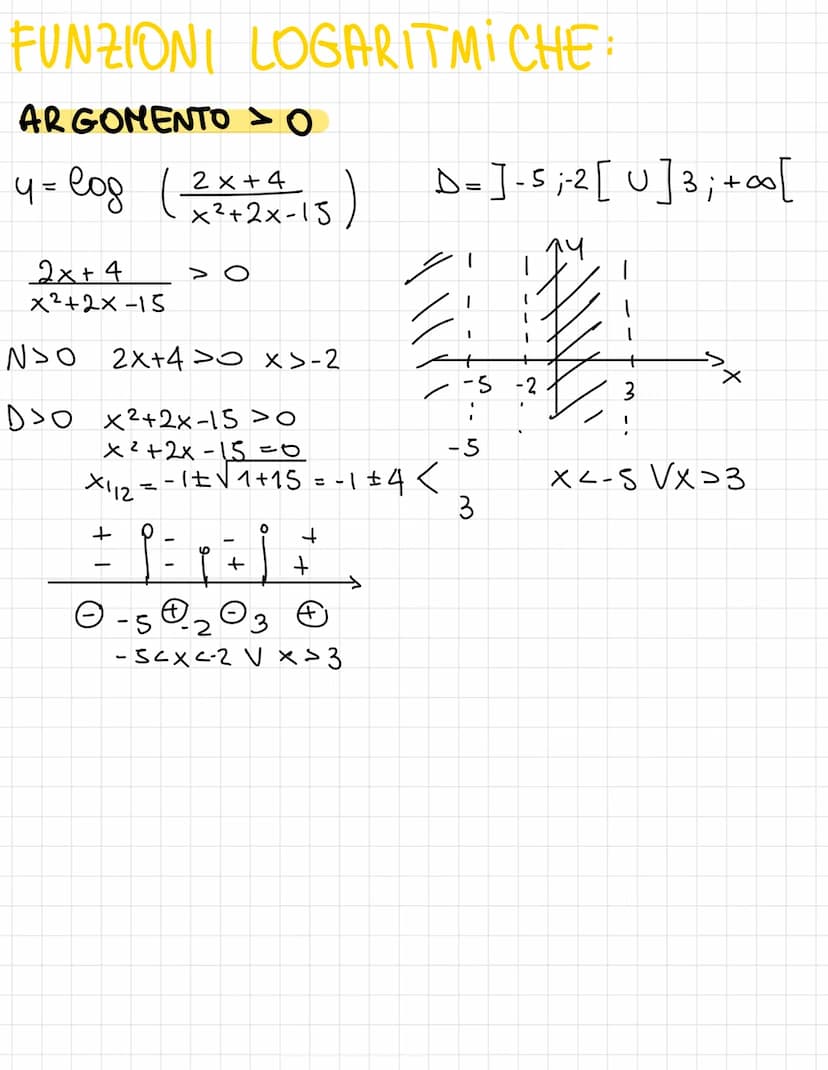 FUNZIONI LOGARITMICHE:
ARGOMENTO > 0
y = log (2x+4 / x²+2x-15)
D = ]-5;-2[ ∪ ]3;+∞[
2x+4 / x²+2x-15 > 0
N>0 2x+4>0 x>-2
D>0 x²+2x-15>0
x²+2x-15=0
x1,2 = -1±√1+15 = -1±4 < -5 3
y
x
-5 -2 3
x<-5 ∨ x>3
+ - - +
- - + +
⊖ -5 ⊕ -2 ⊖ 3 ⊕
-5<x<-2 ∨ x>3